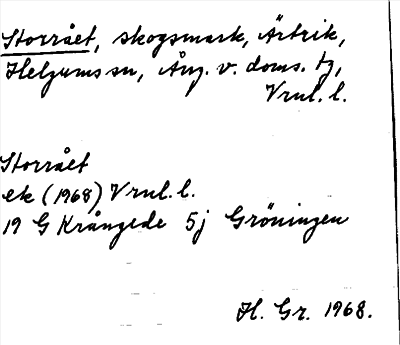 Storrået, skogsmark, Ärtrik,
Helgums sn, Ång. v. doms. tg,
Vrnl. l.
Storrået
ek (1968) Vrnl. l.
19 G Krångede 5j Gröningen
H. Gr. 1968.